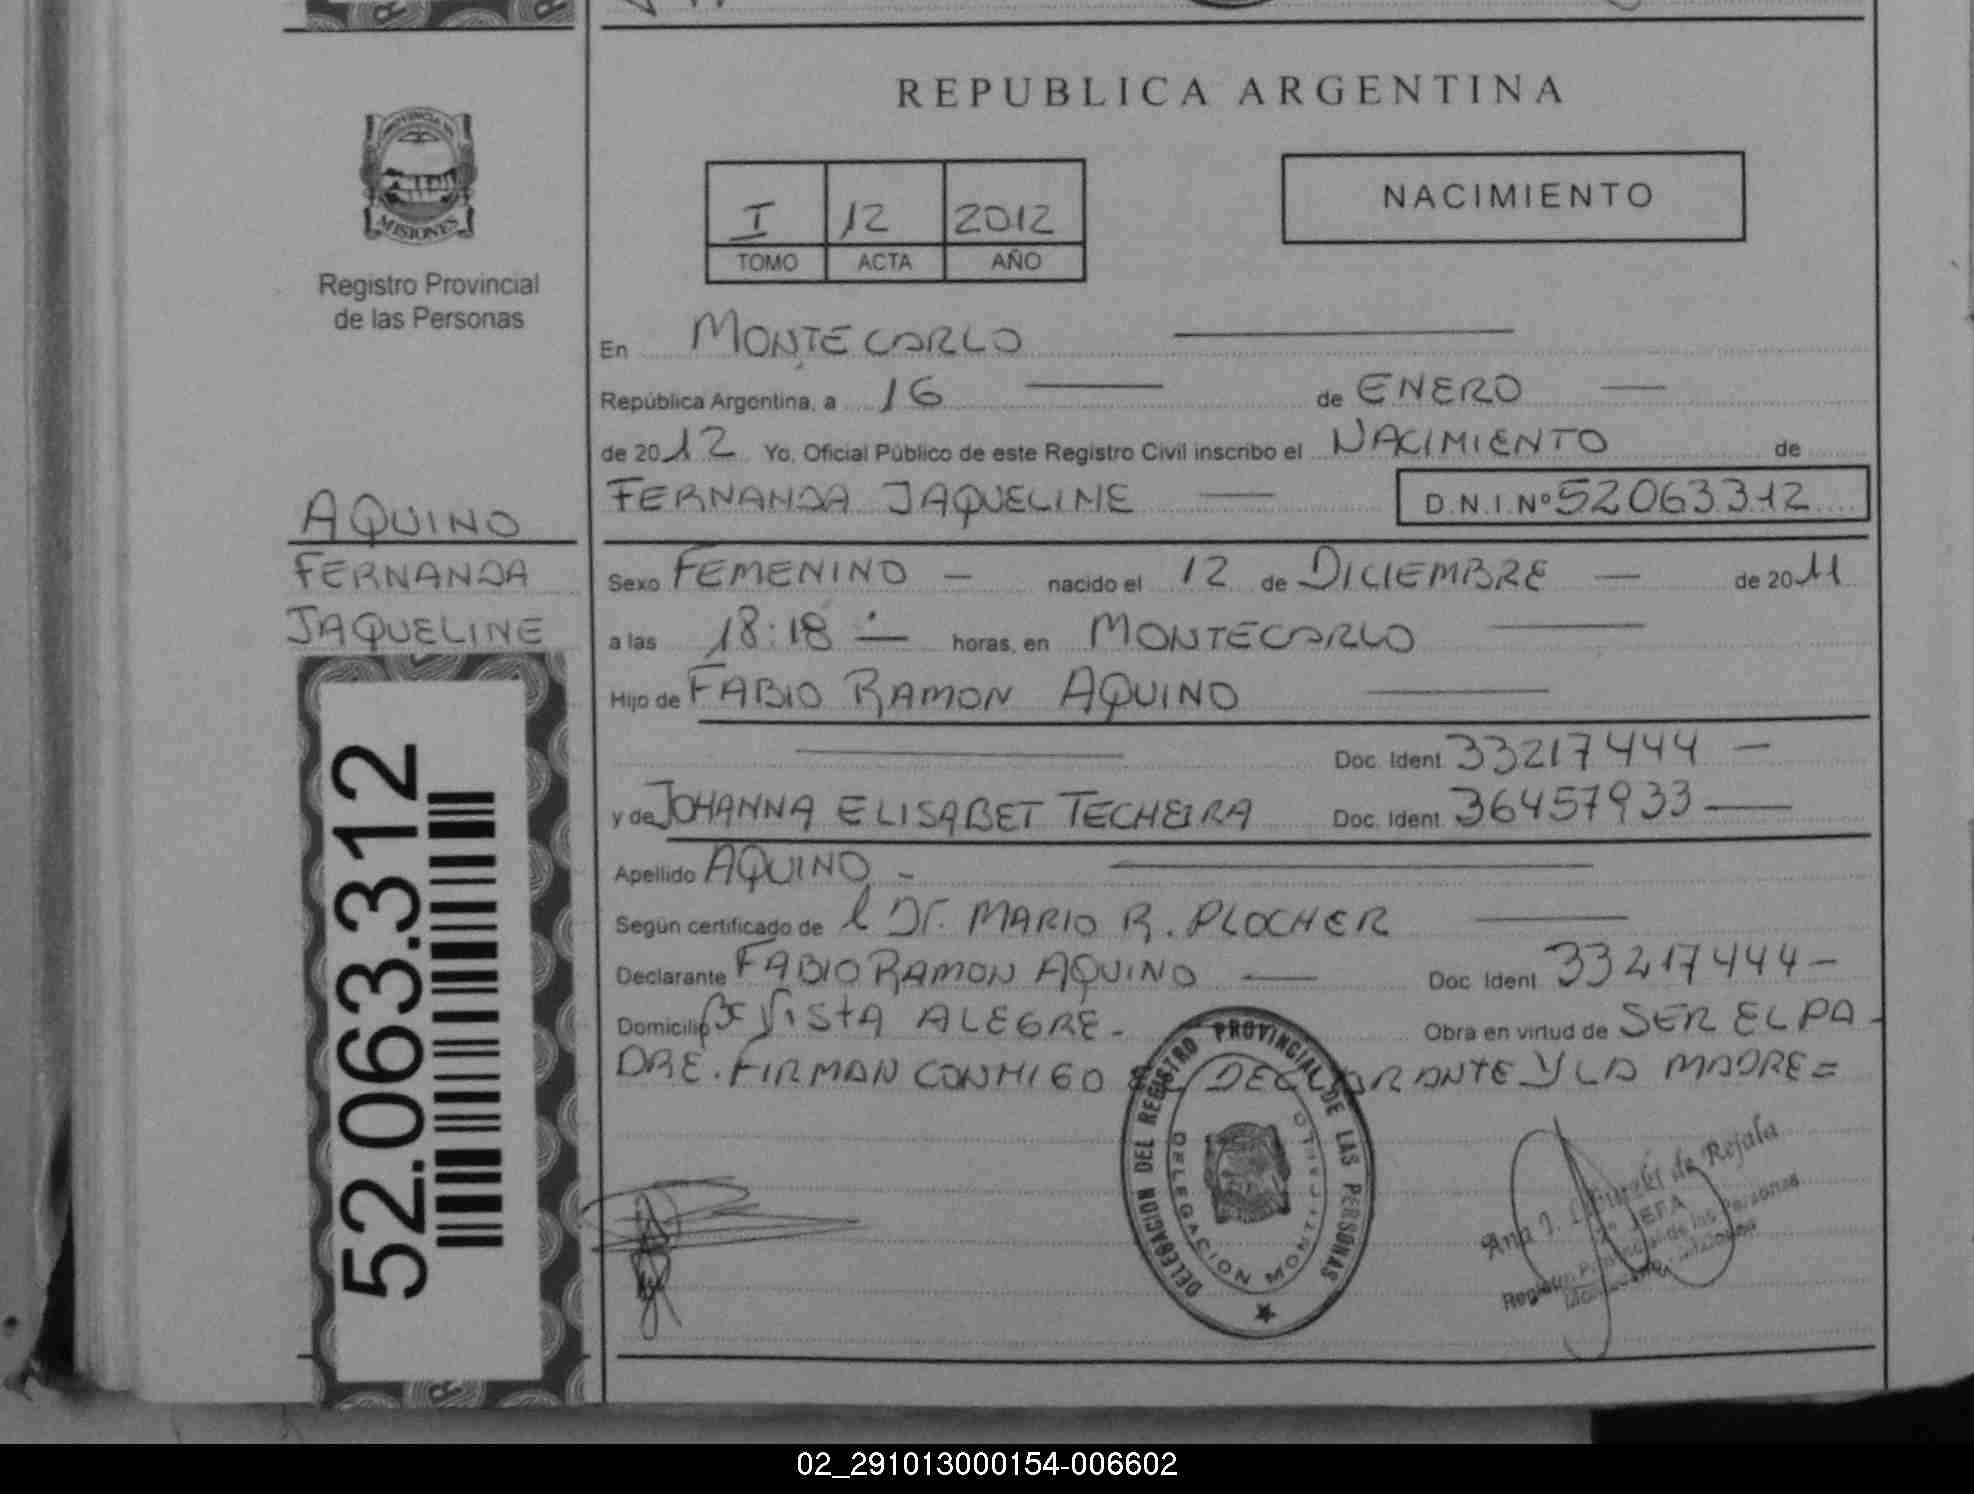 REPUBLICA ARGENTINA
PROVINCIA DE
MISIONES
Registro Provincial
de las Personas
I 12 2012
TOMO ACTA AÑO
NACIMIENTO
En MONTECARLO
República Argentina, a 16 de ENERO
de 2012 Yo, Oficial Público de este Registro Civil inscribo el NACIMIENTO de
FERNANDA JAQUELINE D.N.I.Nº 52063312
AQUINO
FERNANDA
JAQUELINE
Sexo FEMENINO — nacido el 12 de DICIEMBRE — de 2011
a las 18:18 horas, en MONTECARLO
Hijo de FABIO RAMON AQUINO
Doc. Ident 33217444 —
y de JOHANNA ELISABET TECHEIRA Doc. Ident. 36457933
Apellido AQUINO -
Según certificado de l Dr. MARIO R. PLOCHER
Declarante FABIO RAMON AQUINO — Doc Ident 33217444 -
Domicilio Bº VISTA ALEGRE - Obra en virtud de SER EL PA-
DRE. FIRMAN CONMIGO EL DECLARANTE Y LA MADRE =
52.063.312
DELEGACION DEL REGISTRO PROVINCIAL DE LAS PERSONAS
DELEGACION MONTECARLO
Ana de Rejala
JEFA
Registro Provincial de las Personas
02_291013000154-006602